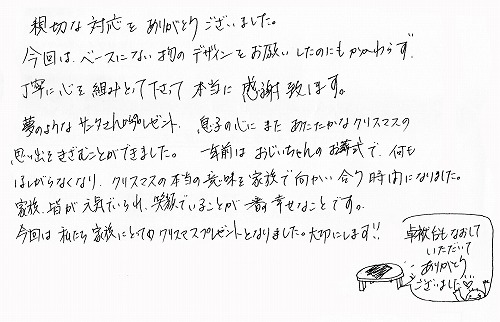 親切な対応を ありがとうございました。
今回は、ベースにない物のデザインを お願いしたのにもかかわらず、
丁寧に心を組みとって下さって 本当に 感謝致します。
夢のような サンタさんからのプレゼント、 息子の心に また あたたかなクリスマスの
思い出をきざむことができました。 一年前は おじいちゃんの お葬式で、何も
ほしがらなくなり、クリスマスの本当の意味を家族で向かい合う時間になりました。
家族、皆が元気でいられ、笑顔でいることが一番の幸せなことです。
今回は 私たち家族にとってのクリスマスプレゼントとなりました。大切にします!!
卓袱台もなおして
いただいて
ありがとう
ございました